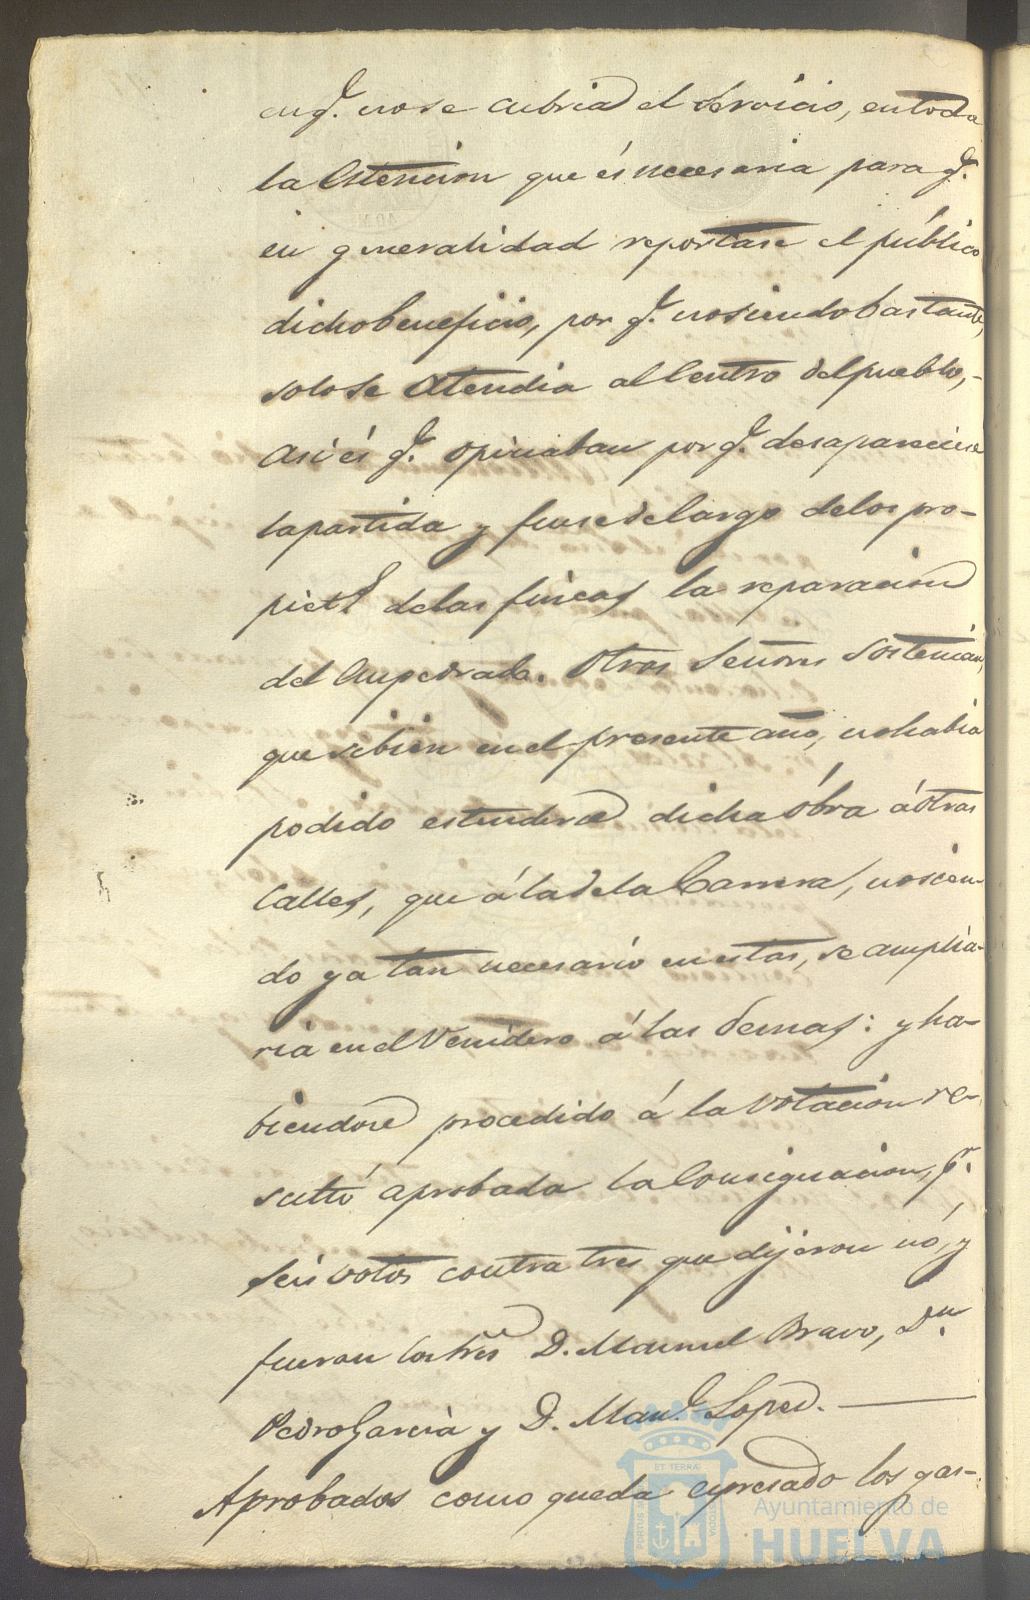 en q.e no se cubria el Servicio, en toda
la Estencion que és necesaria para q.e
en generalidad reportase el público
dicho beneficio, por q.e no siendo bastante,
solo se Atendia al Centro del pueblo,
Asi és q.e opinaban por q.e desapareciese
la partida y fuese de largo de los pro-
piet.s de las fincas la reparacion
del Empedrado. Otros Señores Sostenian,
que si bien en el presente año, no habia
podido estenderse dicha óbra á otras
Calles, que á la de la Carrera, no sien-
do ya tan necesario en estas, se amplia-
ria en el Venidero á las demas: y ha-
biendose procedido á la Votacion re-
sultó aprobada la Consignacion, p.r
seis votos contra tres que dijeron nó, y
fueron los S.res D. Manuel Bravo, D.n
Pedro Garcia y D. Man.l Lopez.
Aprobados como queda espresado los gas-
ET TERRÆ
PORTUS
CUSTODIA
Ayuntamiento de
HUELVA